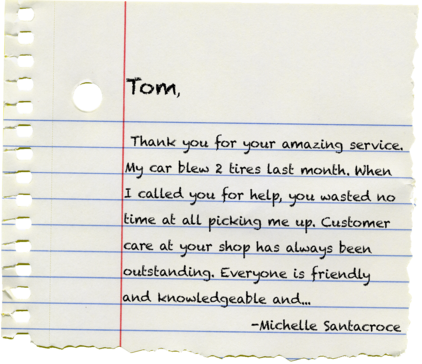 Tom,
Thank you for your amazing service.
My car blew 2 tires last month. When
I called you for help, you wasted no
time at all picking me up. Customer
care at your shop has always been
outstanding. Everyone is friendly
and knowledgeable and...
-Michelle Santacroce